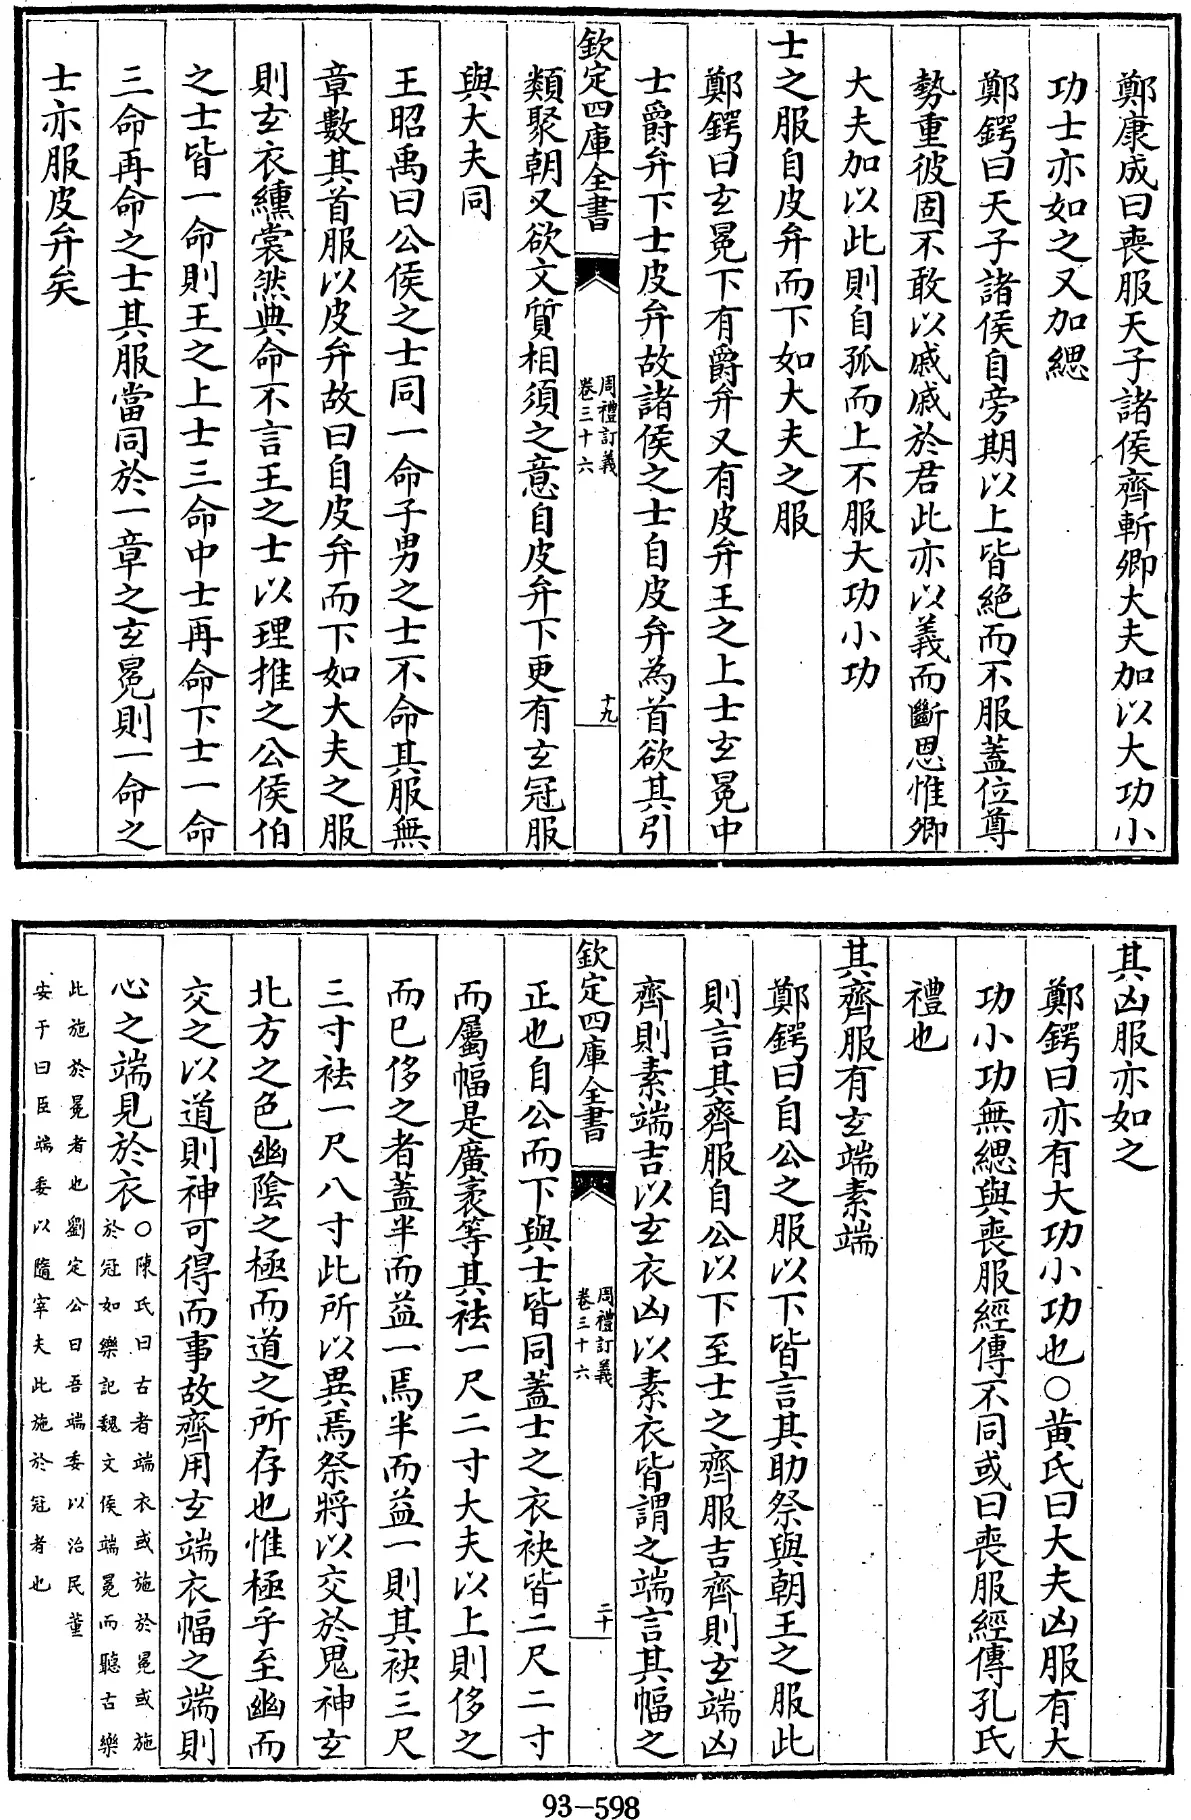 鄭康成曰喪服天子諸侯齊斬卿大夫加以大功小
功士亦如之又加緦
鄭鍔曰天子諸侯自旁期以上皆絶而不服蓋位尊
勢重彼固不敢以戚戚於君此亦以義而斷恩惟卿
大夫加以此則自孤而上不服大功小功
士之服自皮弁而下如大夫之服
鄭鍔曰玄冕下有爵弁又有皮弁王之上士玄冕中
士爵弁下士皮弁故諸侯之士自皮弁為首欲其引
欽定四庫全書
周禮訂義
卷三十六
十九
類聚朝又欲文質相須之意自皮弁下更有玄冠服
與大夫同
王昭禹曰公侯之士同一命子男之士不命其服無
章數其首服以皮弁故曰自皮弁而下如大夫之服
則玄衣纁裳然典命不言王之士以理推之公侯伯
之士皆一命則王之上士三命中士再命下士一命
三命再命之士其服當同於一章之玄冕則一命之
士亦服皮弁矣
其凶服亦如之
鄭鍔曰亦有大功小功也○黄氏曰大夫凶服有大
功小功無緦與喪服經傳不同或曰喪服經傳孔氏
禮也
其齊服有玄端素端
鄭鍔曰自公之服以下皆言其助祭與朝王之服此
則言其齊服自公以下至士之齊服吉齊則玄端凶
齊則素端吉以玄衣凶以素衣皆謂之端言其幅之
欽定四庫全書
周禮訂義
卷三十六
二十
正也自公而下與士皆同蓋士之衣袂皆二尺二寸
而屬幅是廣袤等其袪一尺二寸大夫以上則侈之
而已侈之者蓋半而益一焉半而益一則其袂三尺
三寸袪一尺八寸此所以異焉祭將以交於鬼神玄
北方之色幽陰之極而道之所存也惟極乎至幽而
交之以道則神可得而事故齊用玄端衣幅之端則
心之端見於衣○陳氏曰古者端衣或施於冕或施
於冠如樂記魏文侯端冕而聽古樂
此施於冕者也劉定公曰吾端委以治民董
安于曰臣端委以隨宰夫此施於冠者也
93-598